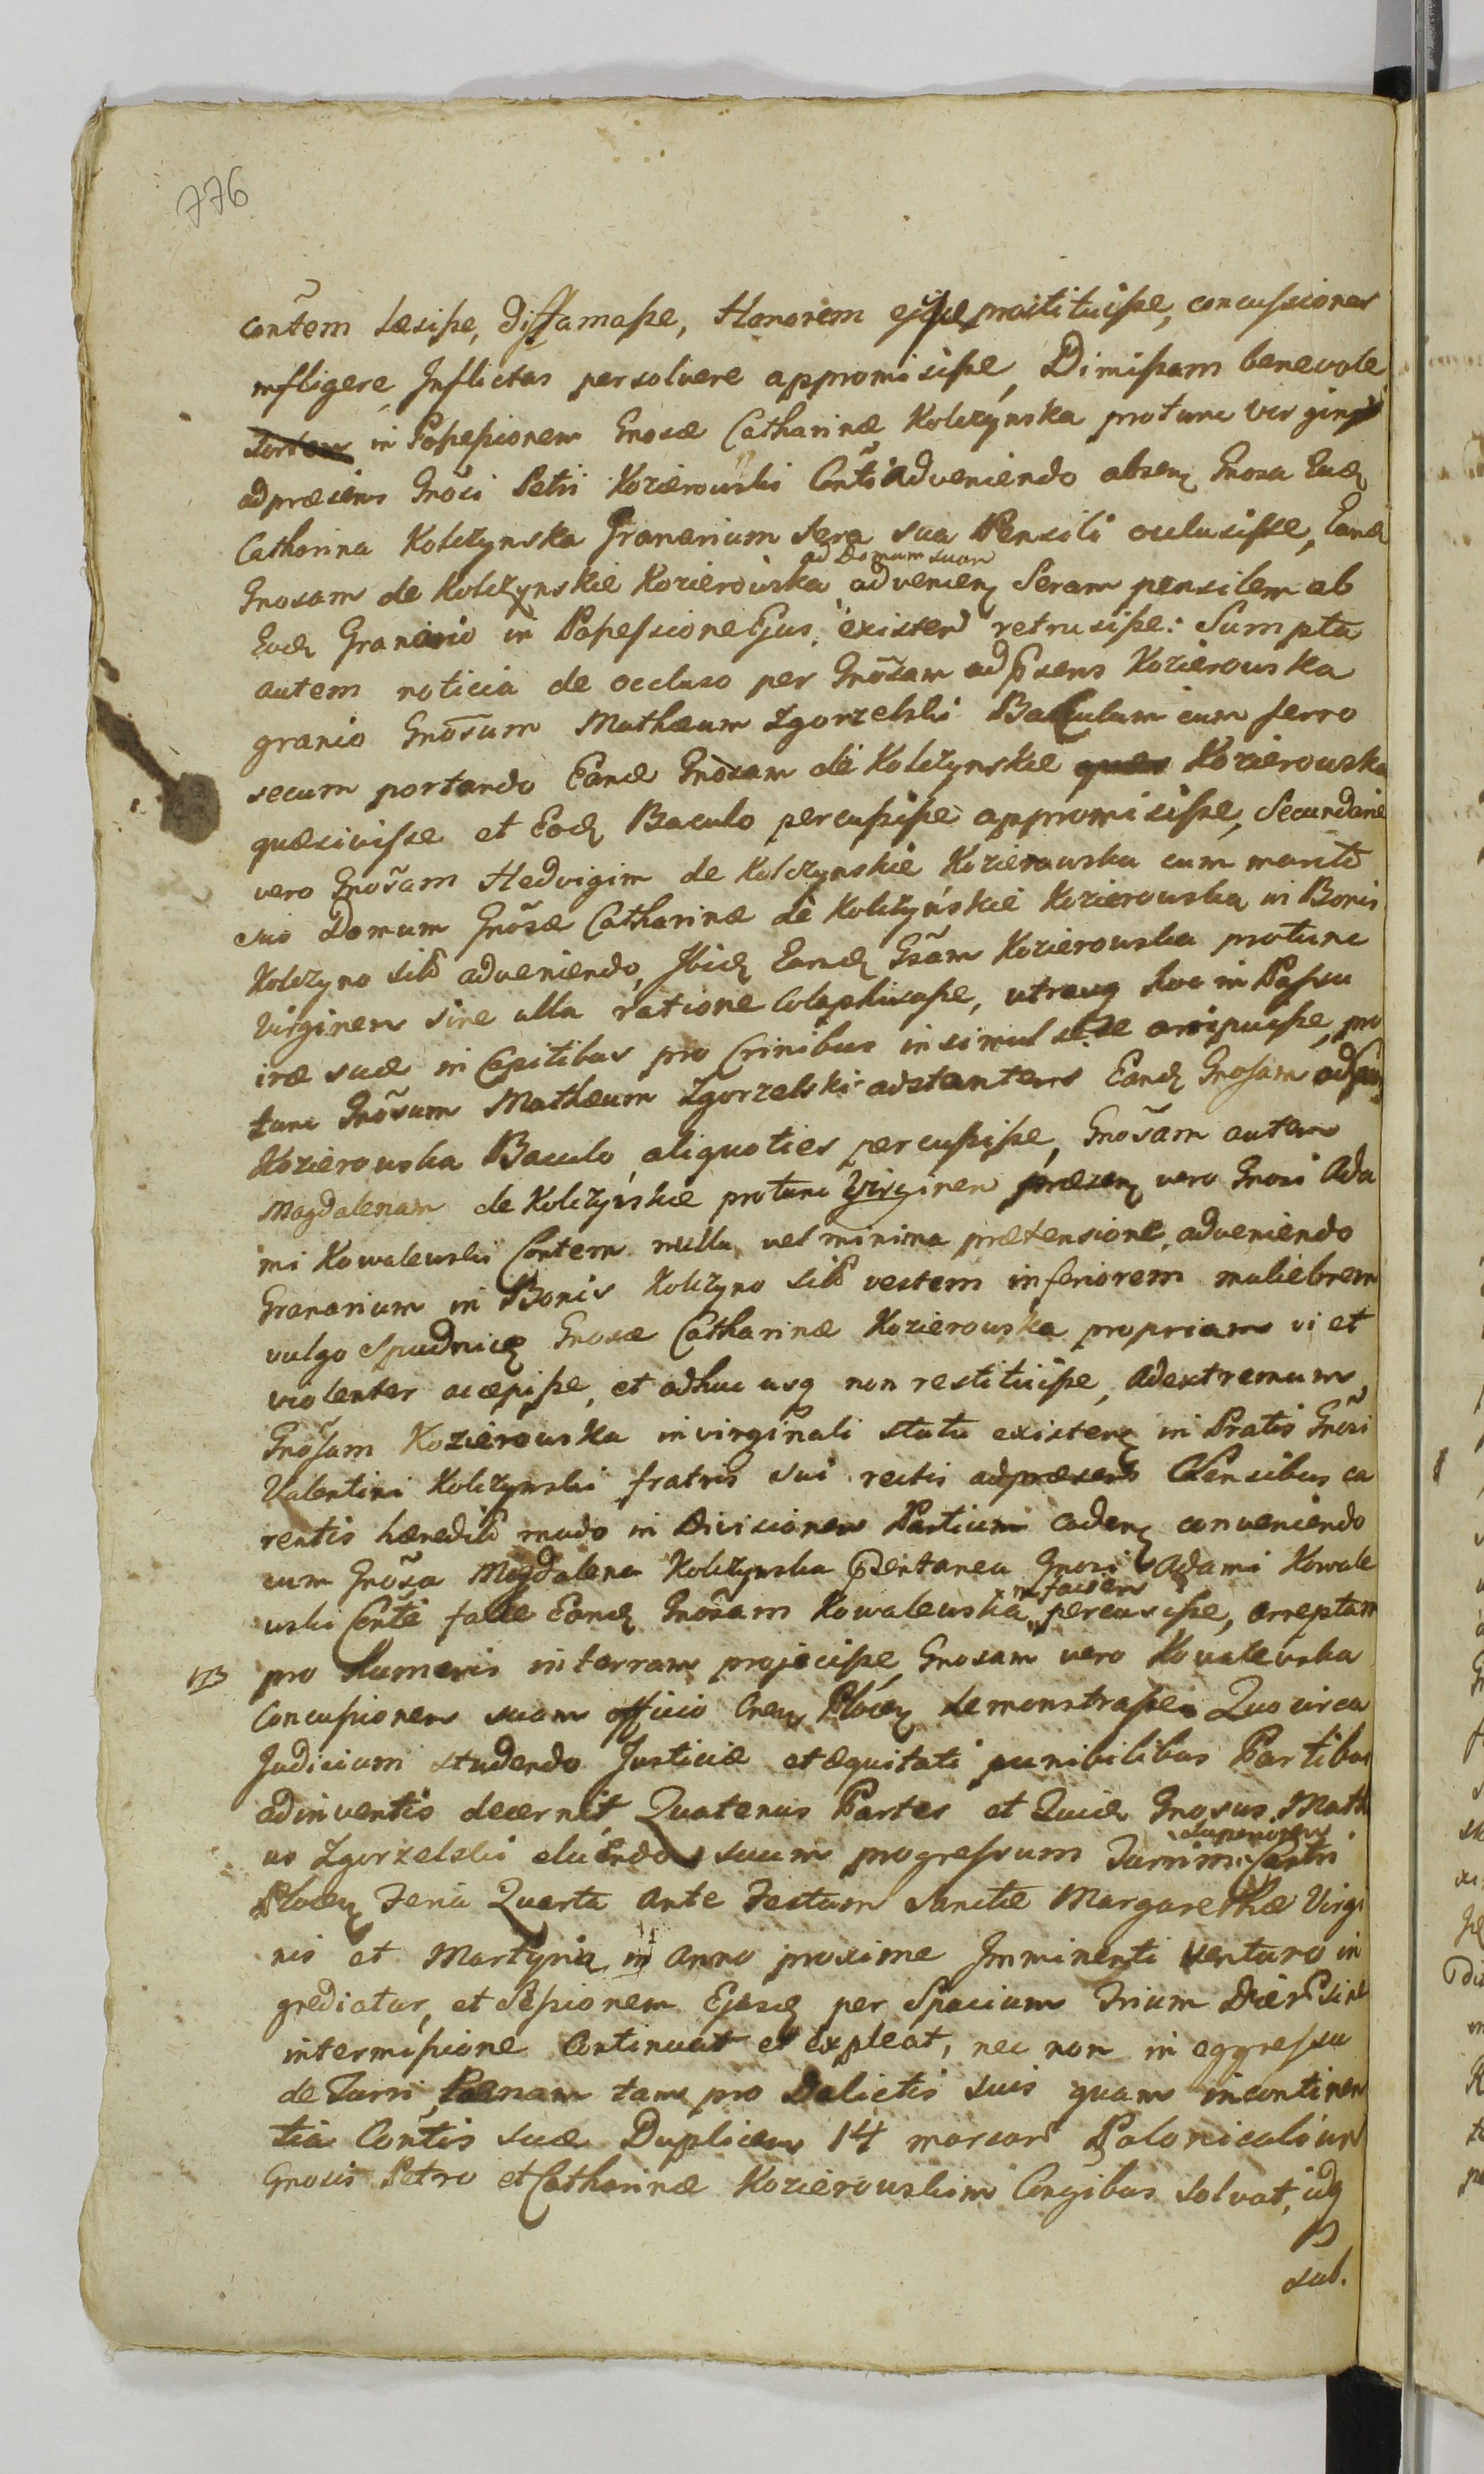 776
contem Læsisse, diffamasse, Honorem ejus prostituisse, concussiones
infligere, Inflictas persolvere appromisisse, Dimissam benevole
in Possessionem Gnosæ Catharinæ Kolczynska protunc virginis
adpræsens Gnosi Petri Kozierowski Contis adveniendo absen Gnosa Ead
Catharina Kolczynska Granarium sera sua Pensili occlusisse, Eand
ad Domum suam
Gnosam de Kolczynskie Kozierowska advenien Seram pensilem ab
Eod Granario in Possessione Ejus existen retrusisse: Sumpta
autem noticia de occluso per Gnosam adpsens Kozierowska
granio Gnosum Mathæum Zgorzelski Baculum cum ferro
secum portando Eand Gnosam de Kolczynskie Kozierowska
quæsivisse et Eod Baculo percussisse appromisisse, Secundarie
vero Gnosam Hedvigim de Kolczynskie Kozierowska cum marito
suo Domum Gnosæ Catharinæ de Kolczyńskie Kozierowska in Bonis
Kolczyno sitt adveniendo, Ibid Eand Gsam Kozierowska protunc
Virginem sine ulla ratione Colaphisasse, utraq hoc in Passu
iræ suæ in Capitibus pro Crinibus insimul sese arripuisse, pro
tunc Gnosum Mathæum Zgorzelski adstantem Eand Gnosam adpsen
Kozierowska Baculo aliquoties percussisse, Gnosam autem
Magdalenam de Kolczyńskie protunc Virginem præsen vero Gnosi Ada
mi Kowalewski Contem nulla vel minima prætensione, adveniendo
Granarium in Bonis Kolczyno sitt vestem inferiorem muliebrem
vulgo Spudnicę Gnosæ Catharinæ Kozierowska propriam vi et
violenter accepisse, et adhuc usq non restituisse, Adextremum
Gnosam Kozierowska in virginali statu existen in Pratis Gnosi
Valentini Kolczynski fratris sui rectis adpræsens Sensibus ca
rentis hæredit modo in Divisionem Partium caden conveniendo
cum Gnosa Magdalena Kolczynska psentanea Gnosi Adami Kowale
in faciem
wski Conte facie Eand Gnosam Kowalewska percussisse, arreptam
pro Humeris in terram projecisse, Gnosam vero Kowalewska
Concussionem suam officio Cnen Plocen demonstrasse. Quo circa
Judicium studendo Justiciæ et æquitati punibilibus Partibus
adinventis decernit, Quatenus Partes et Quid Gnosus Mathæ
superiorem
us Zgorzelski eluendo suum progressum Turrim Castri
Plocen Feria Quarta Ante Festum Sanctæ Margarethæ Virgi
nis et Martyris in Anno proxime Imminenti venturo in
grediatur, et Sessionem Ejusd per Spacium Trium Dier sine
intermissione Continuat et Expleat, nec non in eggressu
de Turri Pœnam tam pro Delictis suis quam incontinen
tia Contis suæ Duplicem 14 marcar Polonicaliun
Gnosis Petro et Catharinæ Kozierowskim Congibus solvat, idq
sub.